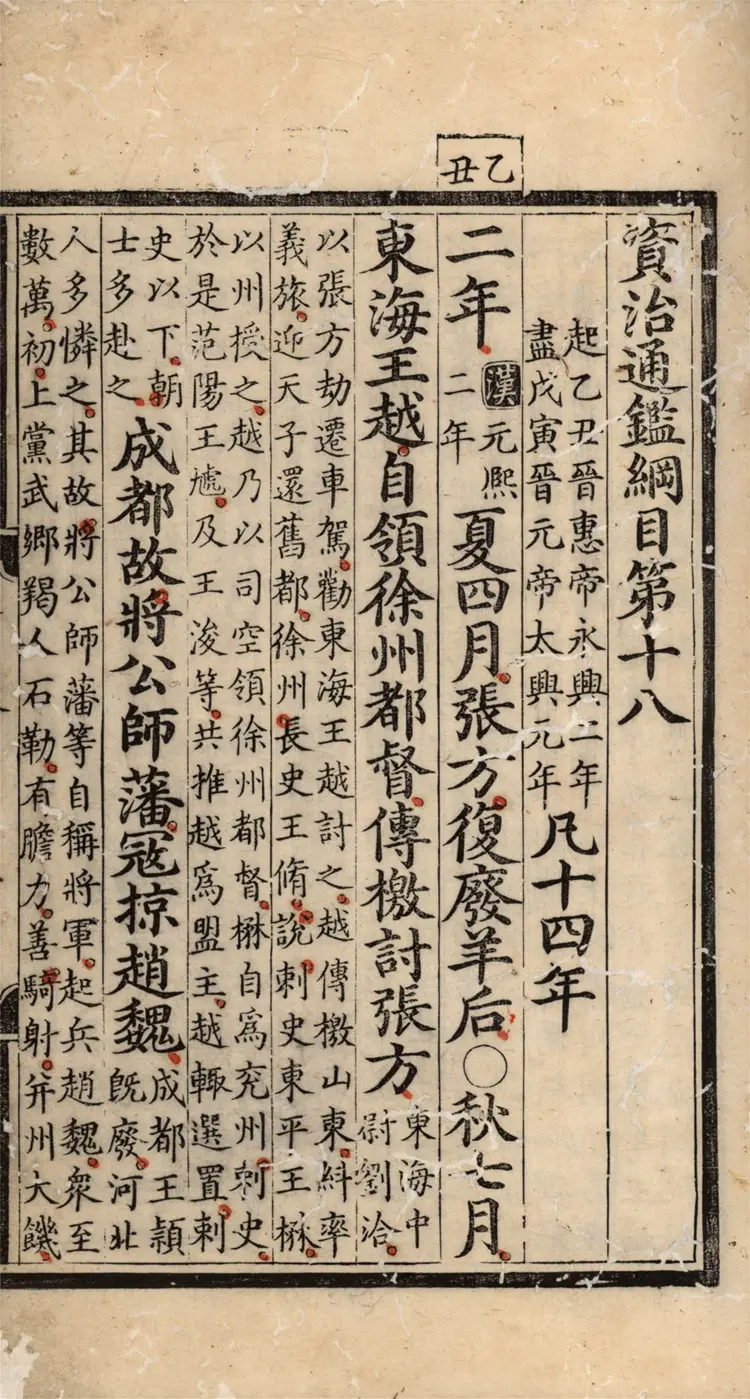 乙丑
資治通鑑綱目第十八
起乙丑晉惠帝永興二年
盡戊寅晉元帝太興元年
凡十四年
二年
漢元熙
二年
夏四月張方復廢羊后○秋七月
東海王越自領徐州都督傳檄討張方
東海中
尉劉洽
以張方劫遷車駕勸東海王越討之越傳檄山東紏率
義旅迎天子還舊都徐州長史王脩說刺史東平王楙
以州授之越乃以司空領徐州都督楙自爲兖州刺史
於是范陽王虓及王浚等共推越爲盟主越輙選置刺
史以下朝
士多赴之
成都故將公師藩寇掠趙魏
成都王穎
旣廢河北
人多憐之其故將公師藩等自稱將軍起兵趙魏衆至
數萬初上黨武鄉羯人石勒有膽力善騎射并州大饑